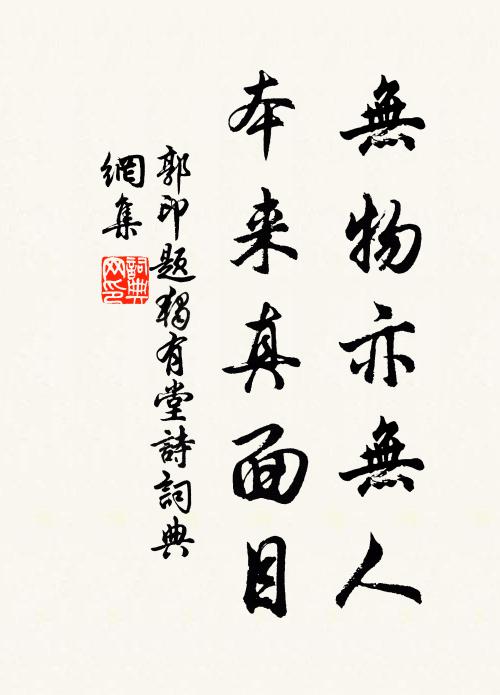 無物亦無人
本来真面目
郭印題獨有堂詩詞典
網集
詞典网印